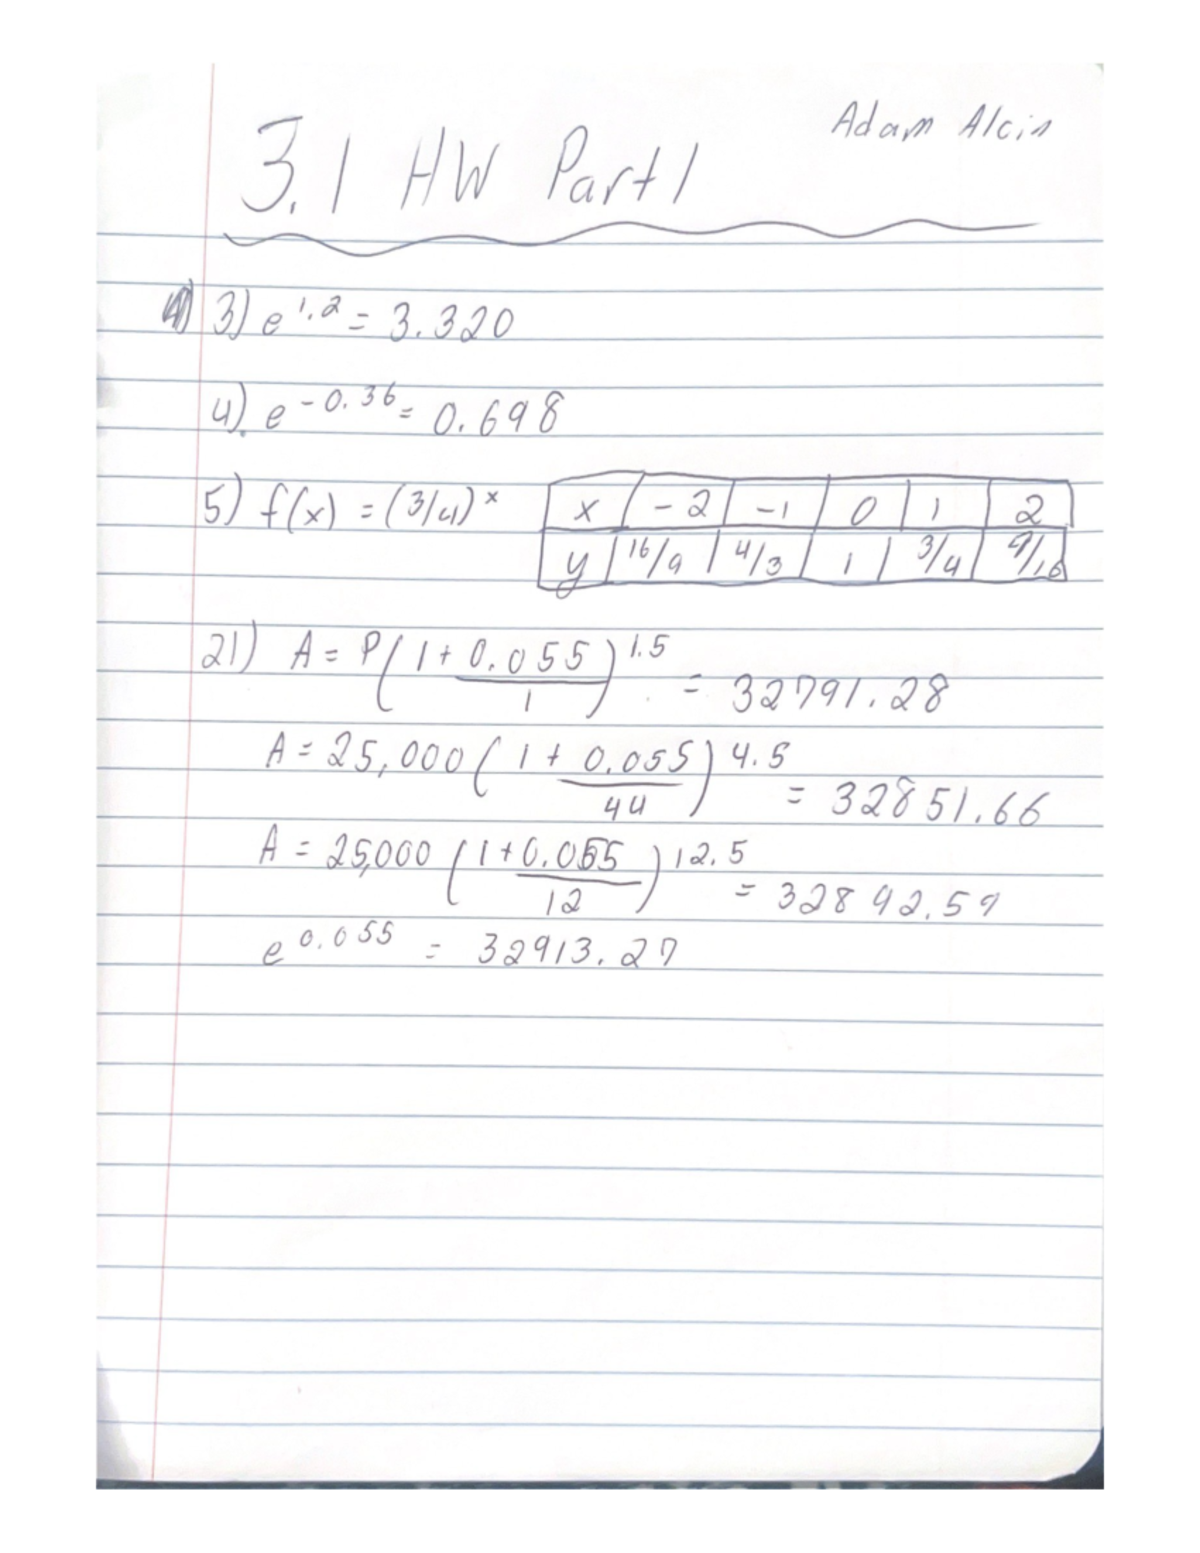 Adam Alcin
3.1 HW Part 1
3) e^1.2 = 3.320
4). e^-0.36 = 0.698
5) f(x) = (3/4)^x
x | -2 | -1 | 0 | 1 | 2
y | 16/9 | 4/3 | 1 | 3/4 | 9/16
21) A = P(1 + 0.055/1)^1.5 = 32791.28
A = 25,000(1 + 0.055/44)^4.5 = 32851.66
A = 25,000(1 + 0.055/12)^12.5 = 32892.59
e^0.055 = 32913.27